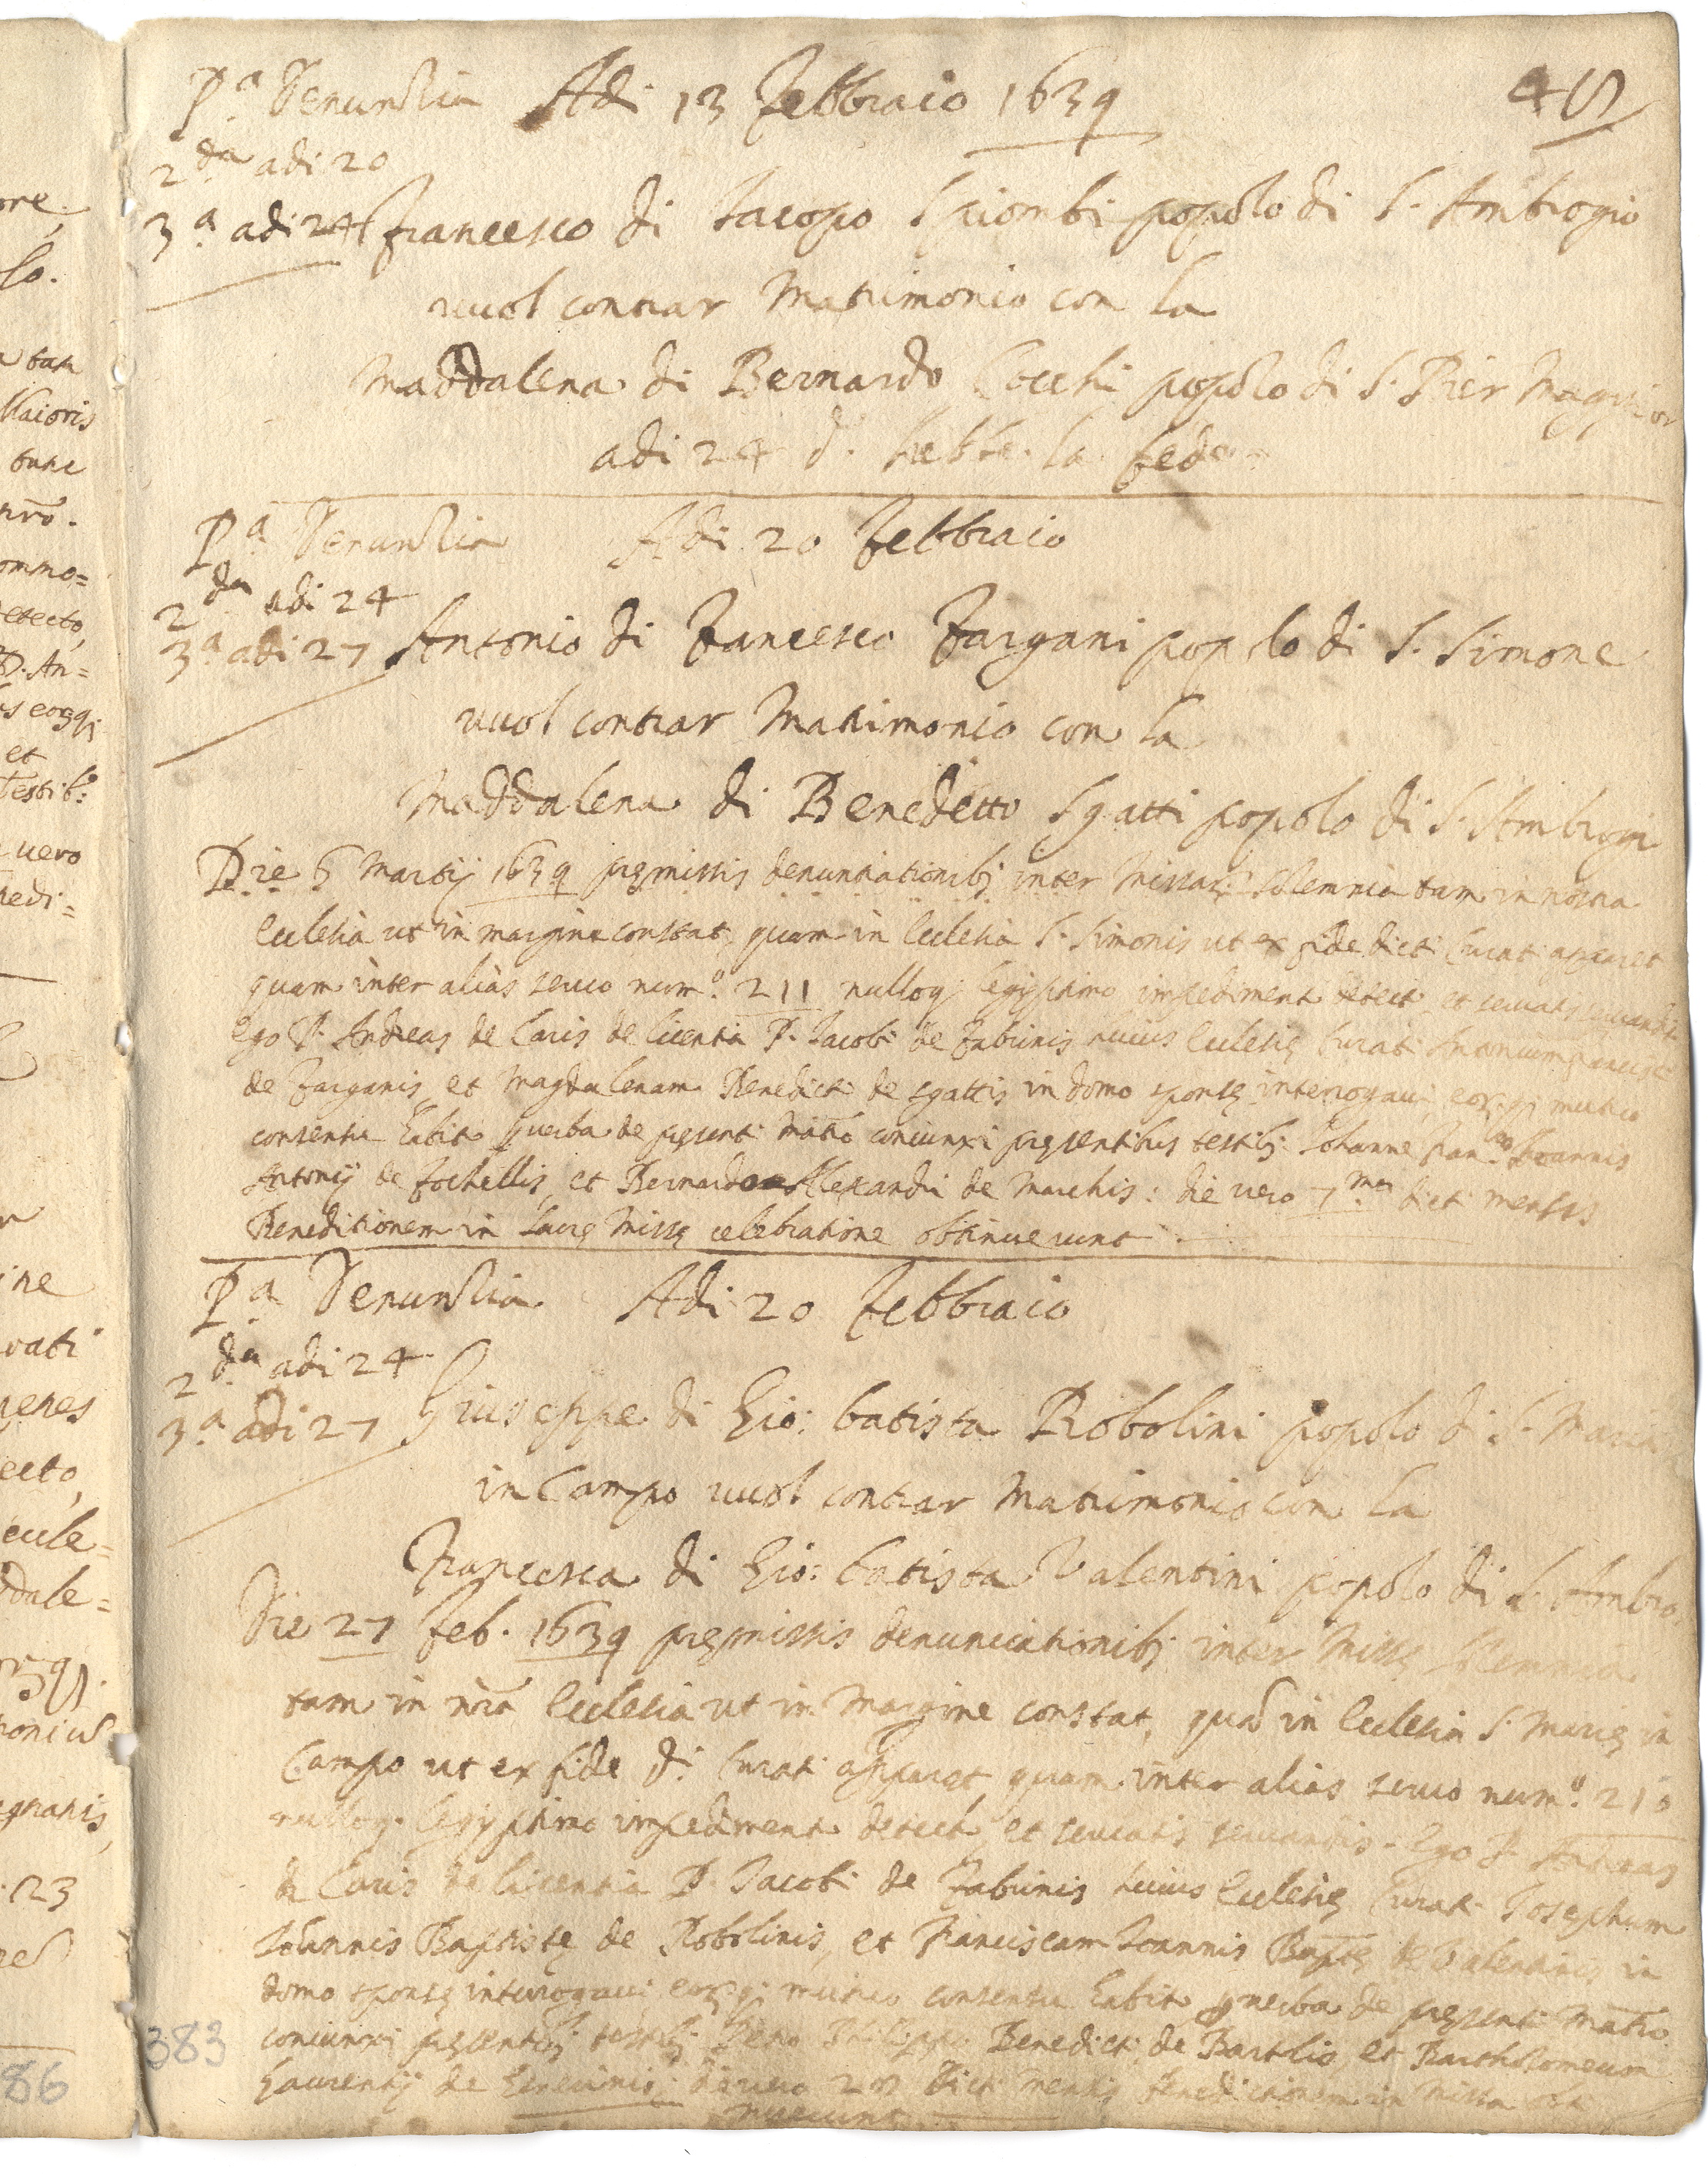 P.a Denunzia Adi 13 Febbraio 1639 45
2.da adi 20
3.a adi 24 Francesco di Iacopo Spiombi popolo di S. Ambrogio
vuol contrar Matrimonio con la
Maddalena di Bernardo Cecchi popolo di S. Pier Maggior
adi 24 d. hebbe la fede
P.a Denunzia Adi 20 Febbraio
2.da adi 24
3.a adi 27 Antonio di Francesco Fargani popolo di S. Simone
vuol contrar Matrimonio con la
Maddalena di Benedetto Sgatti popolo di S. Ambrogi
Die 6 Martij 1639 premissis denuntiationibj inter Missar. solemnia tam in nostra
Ecclesia ut in margine constat, quam in Ecclesia S. Simonis ut ex fide dicti Curati apparet
quam inter alias servo num.o 211 nulloq; legiptimo impedimento detecto, et servatis servandis
ego P. Andreas de Caris de licentia P. Iacobi de Fabrinis huius Ecclesie Curati Antonium Francisci
de Farganis, et Magdalenam Benedicti de Sgattis in domo sponse interrogavi, eorq; mutuo
consensu habito p verba de presenti matrio coniunxi presentibus testibj Iohanne Fran.co Ioannis
Antonij de Fochellis, et Bernardo Alexandri de Marchis: die vero 7.ma dicti mensis
Beneditionem in Sacre Misse celebratione obtinuerunt.
P.a Denunzia Adi 20 Febbraio
2.da adi 24
3.a adi 27 Giuseppe di Gio: batista Robolini popolo di S. Maria
in Campo vuol contrar Matrimonio con la
Francesca di Gio: batista Valentini popolo di S. Ambro
Die 27 Feb. 1639 premissis denunciationibj inter Misse solemnia
tam in nra Ecclesia ut in Margine constat, qua in Ecclesia S. Marie in
Campo ut ex fide d. Curati apparet, quam inter alias servo num.o 210
nulloq. legiptimo impedimento detecto, et servatis servandis. Ego P. Andreas
de Caris de licentia P. Iacobi de Fabrinis huius Ecclesie Curati Iosephum
Ioannis Baptiste de Robolinis, et Franciscam Ioannis Bapte de Valentinis in
domo sponse interrogavi, eorq; mutuo consensu habito p verba de presenti matrio
coniunxi presentibj testibj Philippo Benedicti de Bartolis, et Bartholomeum
383 Laurentij de die vero dicti mensis benedictionem in Missa obti
nuerunt